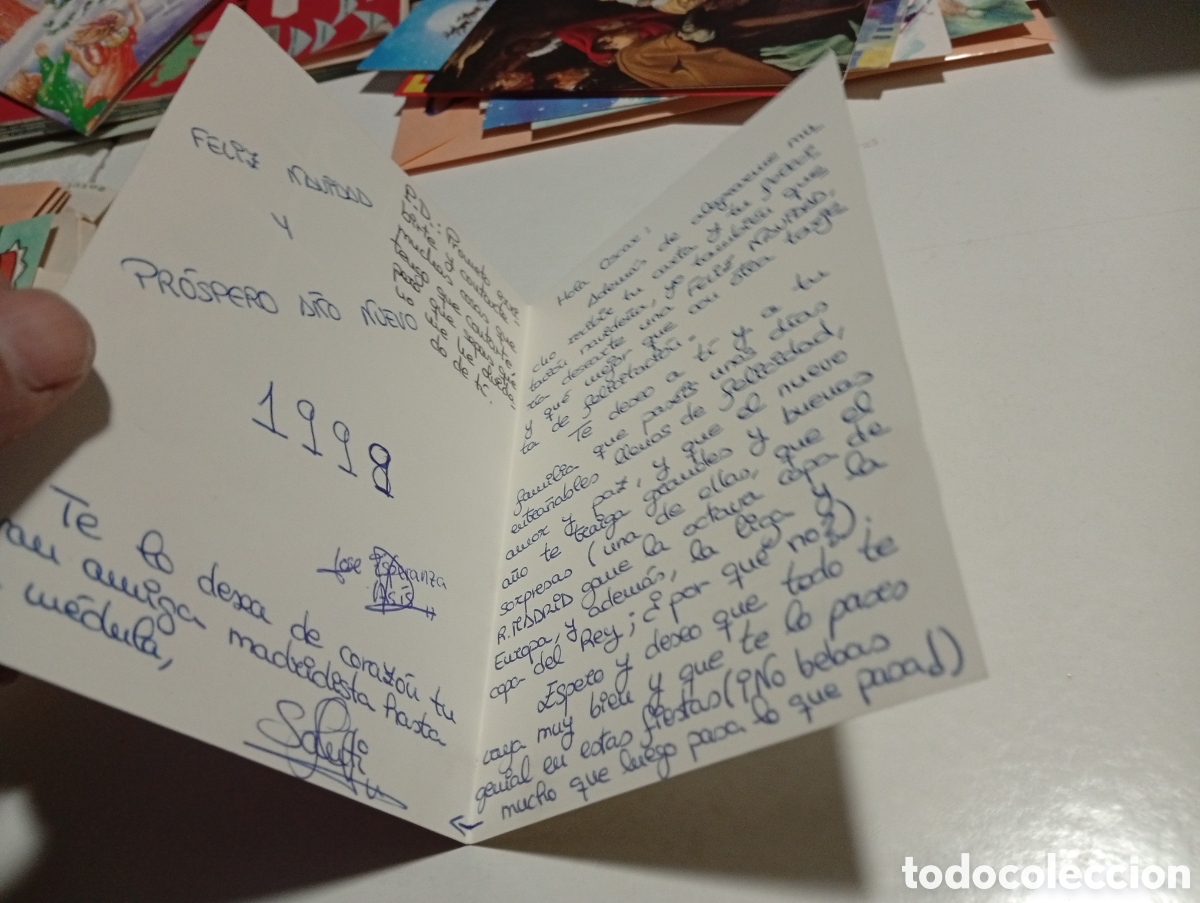 FELIZ NAVIDAD
Y
PRÓSPERO AÑO NUEVO
1998
Te lo desea de corazón tu
gran amiga madridista hasta
la médula,
Jose Esperanza
P.D.: Prometo escri-
birte y contarte
muchas cosas que
tengo que contarte,
para que veas que
no me he olvida-
do de ti.
Hola Oscar:
Además de alegrarme mu
cho recibir tu carta y tu postal
navideña, yo también que
ría desearte una FELIZ NAVIDAD,
y qué mejor que con otra tarje
ta de felicitación.
Te deseo a ti y a tu
familia que paséis unos días
entrañables llenos de felicidad,
amor y paz, y que el nuevo
año te traiga grandes y buenas
sorpresas (una de ellas, que el
R. MADRID gane la octava copa de
Europa, y además, la liga y la
copa del Rey; ¿por qué no?).
Espero y deseo que todo te
vaya muy bien y que te lo pases
genial en estas fiestas (¡No bebas
mucho que luego pasa lo que pasa!)
←
todocoleccion